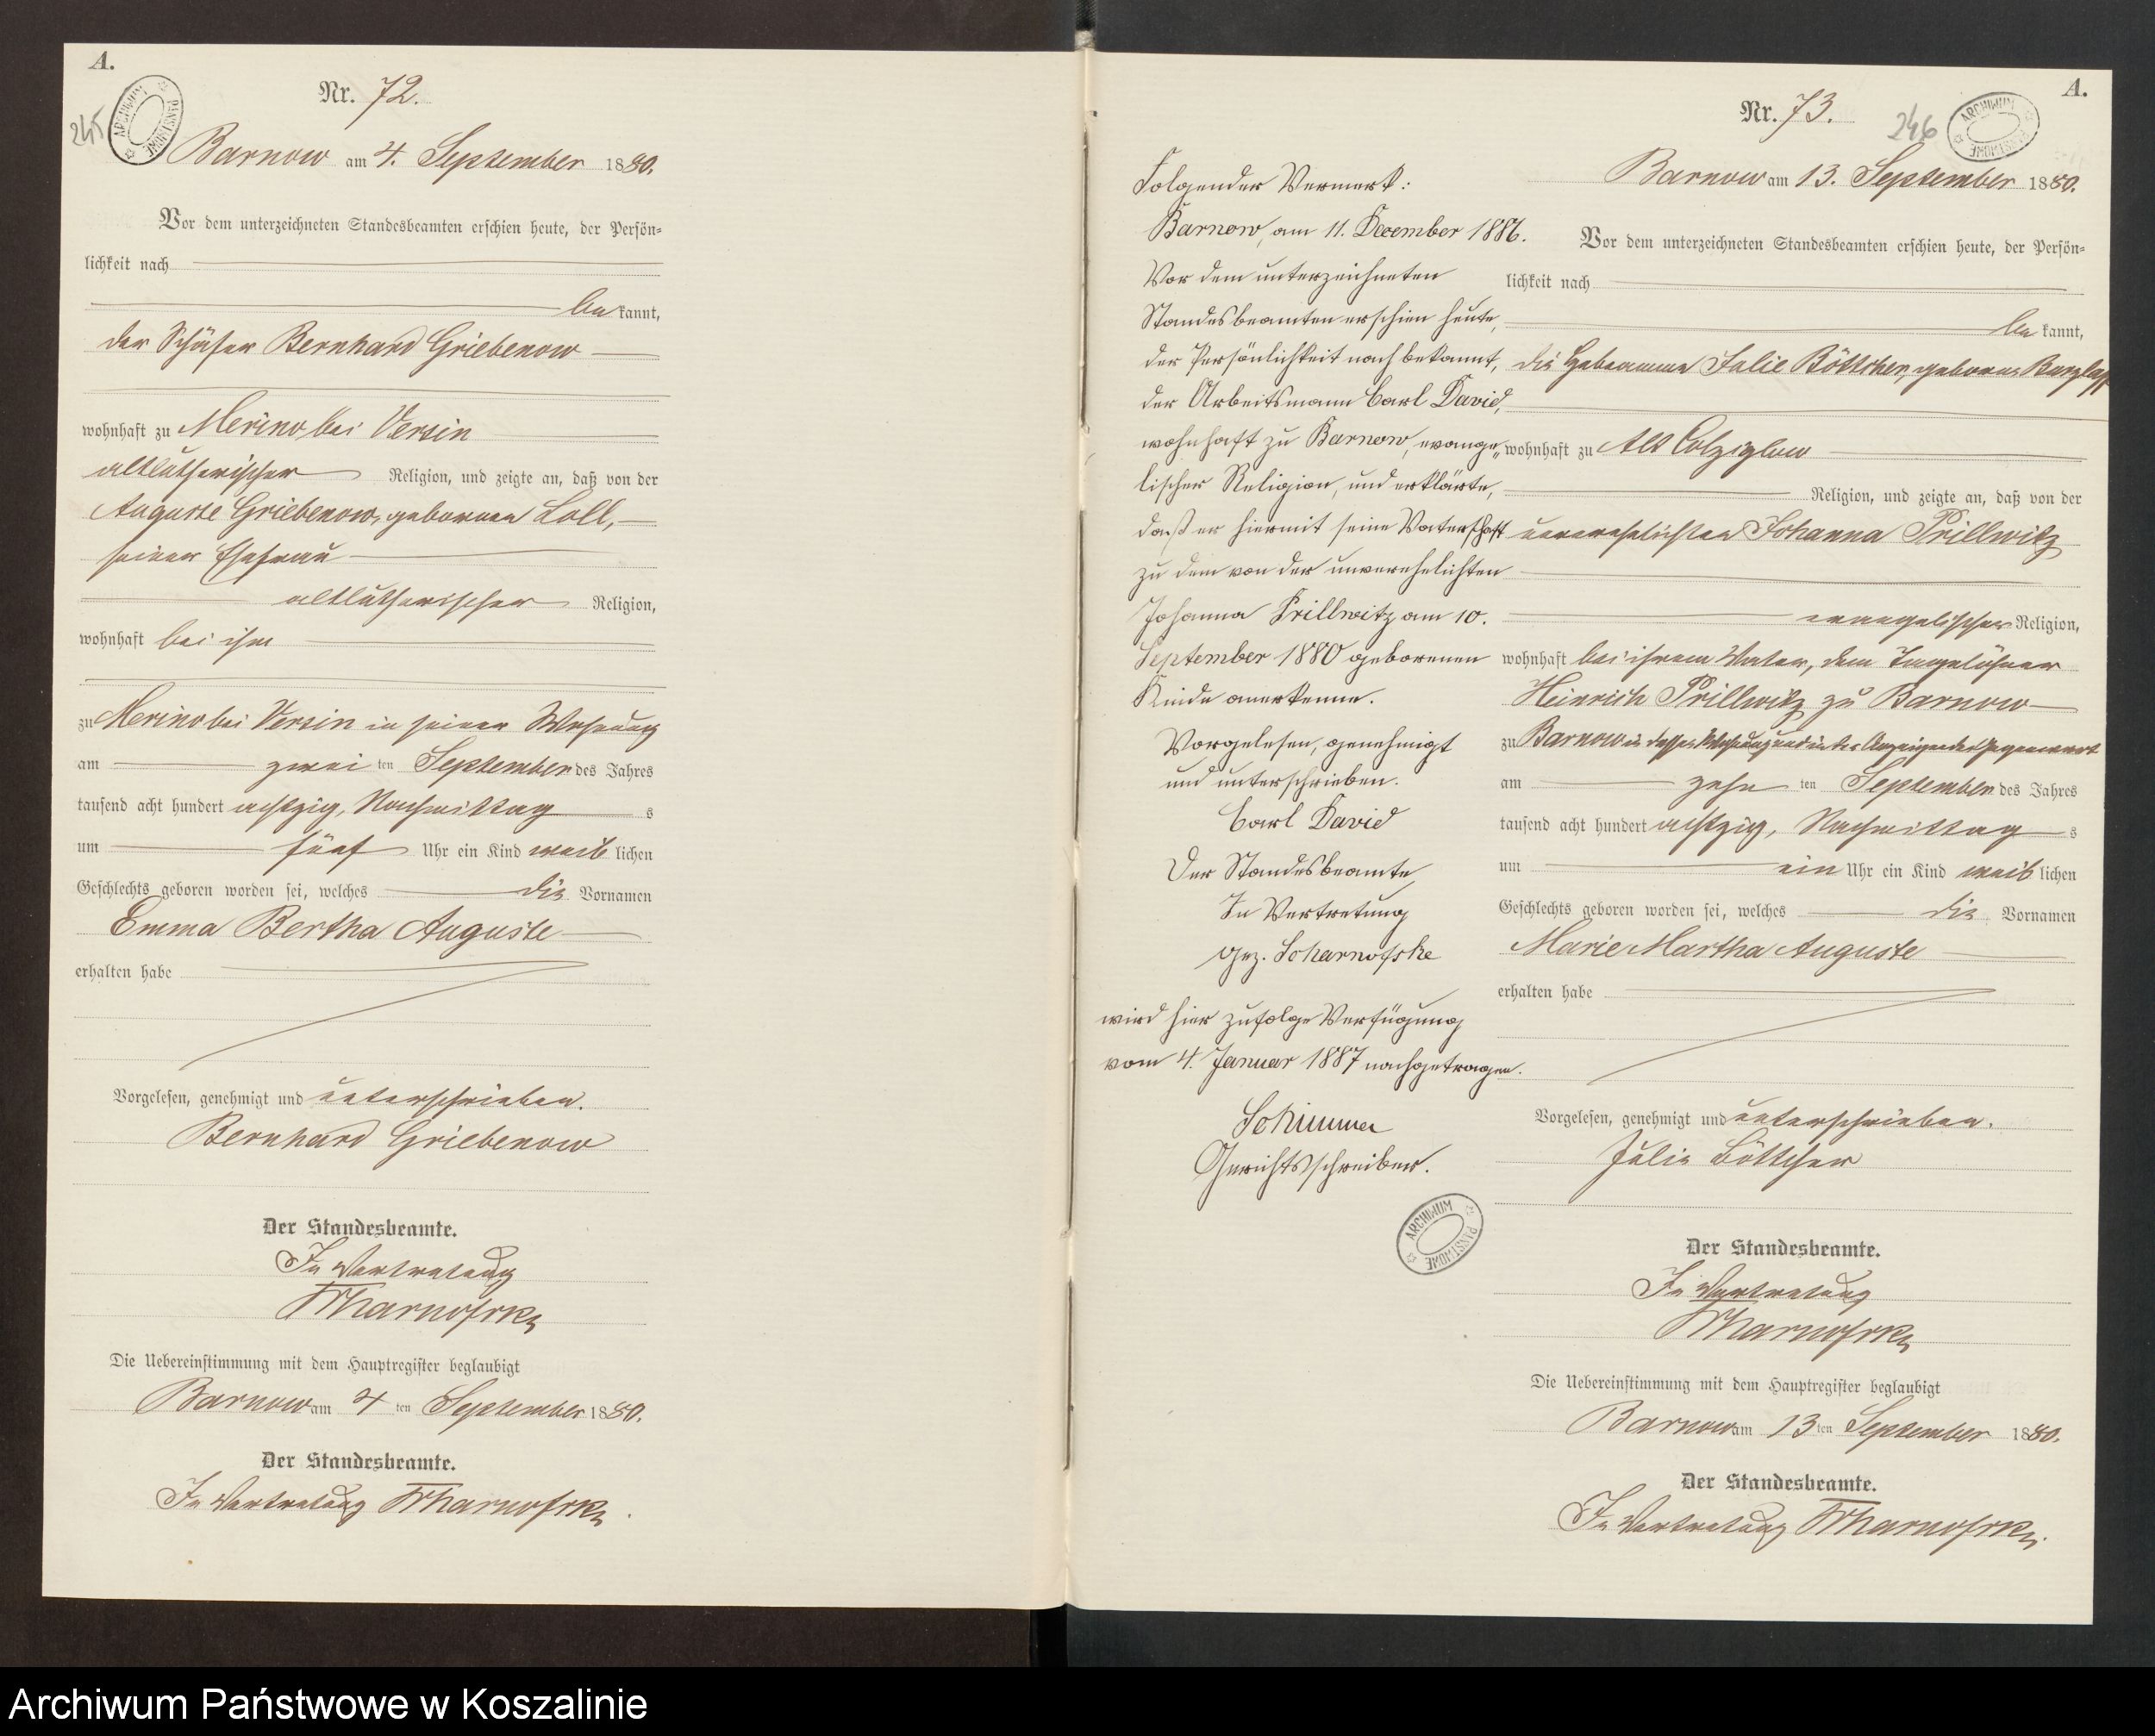 A.
245
ARCHIWUM PAŃSTWOWE
Nr. 72.
Barnow am 4. September 1880.
Vor dem unterzeichneten Standesbeamten erschien heute, der Persön-
lichkeit nach
bekannt,
der Schäfer Bernhard Griebenow
wohnhaft zu Merino bei Versin
altlutherischer Religion, und zeigte an, daß von der
Auguste Griebenow, geborenen Loll,
seiner Ehefrau
altlutherischer Religion,
wohnhaft bei ihm
zu Merino bei Versin in seiner Wohnung
am zwei ten September des Jahres
tausend acht hundert achtzig, Nachmittags
um fünf Uhr ein Kind weiblichen
Geschlechts geboren worden sei, welches die Vornamen
Emma Bertha Auguste
erhalten habe
Vorgelesen, genehmigt und unterschrieben.
Bernhard Griebenow
Der Standesbeamte.
In Vertretung
Scharnofske
Die Uebereinstimmung mit dem Hauptregister beglaubigt
Barnow am 4 ten September 1880.
Der Standesbeamte.
In Vertretung Scharnofske.
A.
246
ARCHIWUM PAŃSTWOWE
Nr. 73.
Barnow am 13. September 1880.
Vor dem unterzeichneten Standesbeamten erschien heute, der Persön-
lichkeit nach
bekannt,
die Hebeamme Julie Böttcher, geborne
wohnhaft zu Alt Colziglow
Religion, und zeigte an, daß von der
unverehelichten Johanna Prillwitz
evangelischer Religion,
wohnhaft bei ihrem Vater, dem Tagelöhner
Heinrich Prillwitz zu Barnow
zu Barnow in dessen Wohnung und in der Anzeigenden Gegenwart
am zehn ten September des Jahres
tausend acht hundert achtzig, Nachmittags
um ein Uhr ein Kind weiblichen
Geschlechts geboren worden sei, welches die Vornamen
Marie Martha Auguste
erhalten habe
Vorgelesen, genehmigt und unterschrieben.
Julie Böttcher
Der Standesbeamte.
In Vertretung
Scharnofske
Die Uebereinstimmung mit dem Hauptregister beglaubigt
Barnow am 13 ten September 1880.
Der Standesbeamte.
In Vertretung Scharnofske.
Folgender Vermerk:
Barnow, am 11. December 1886.
Vor dem unterzeichneten
Standesbeamten erschien heute,
der Persönlichkeit nach bekannt,
der Arbeitsmann Carl David,
wohnhaft zu Barnow, evange„
lischer Religion, und erklärte,
daß er hiermit seine Vaterschaft
zu dem von der unverehelichten
Johanna Prillwitz am 10.
September 1880 geborenen
Kinde anerkenne.
Vorgelesen, genehmigt
und unterschrieben.
Carl David
Der Standesbeamte
In Vertretung
gez. Scharnofske
wird hier zufolge Verfügung
vom 4. Januar 1887 nachgetragen.
Gerichtsschreiber.
ARCHIWUM PAŃSTWOWE
Archiwum Państwowe w Koszalinie